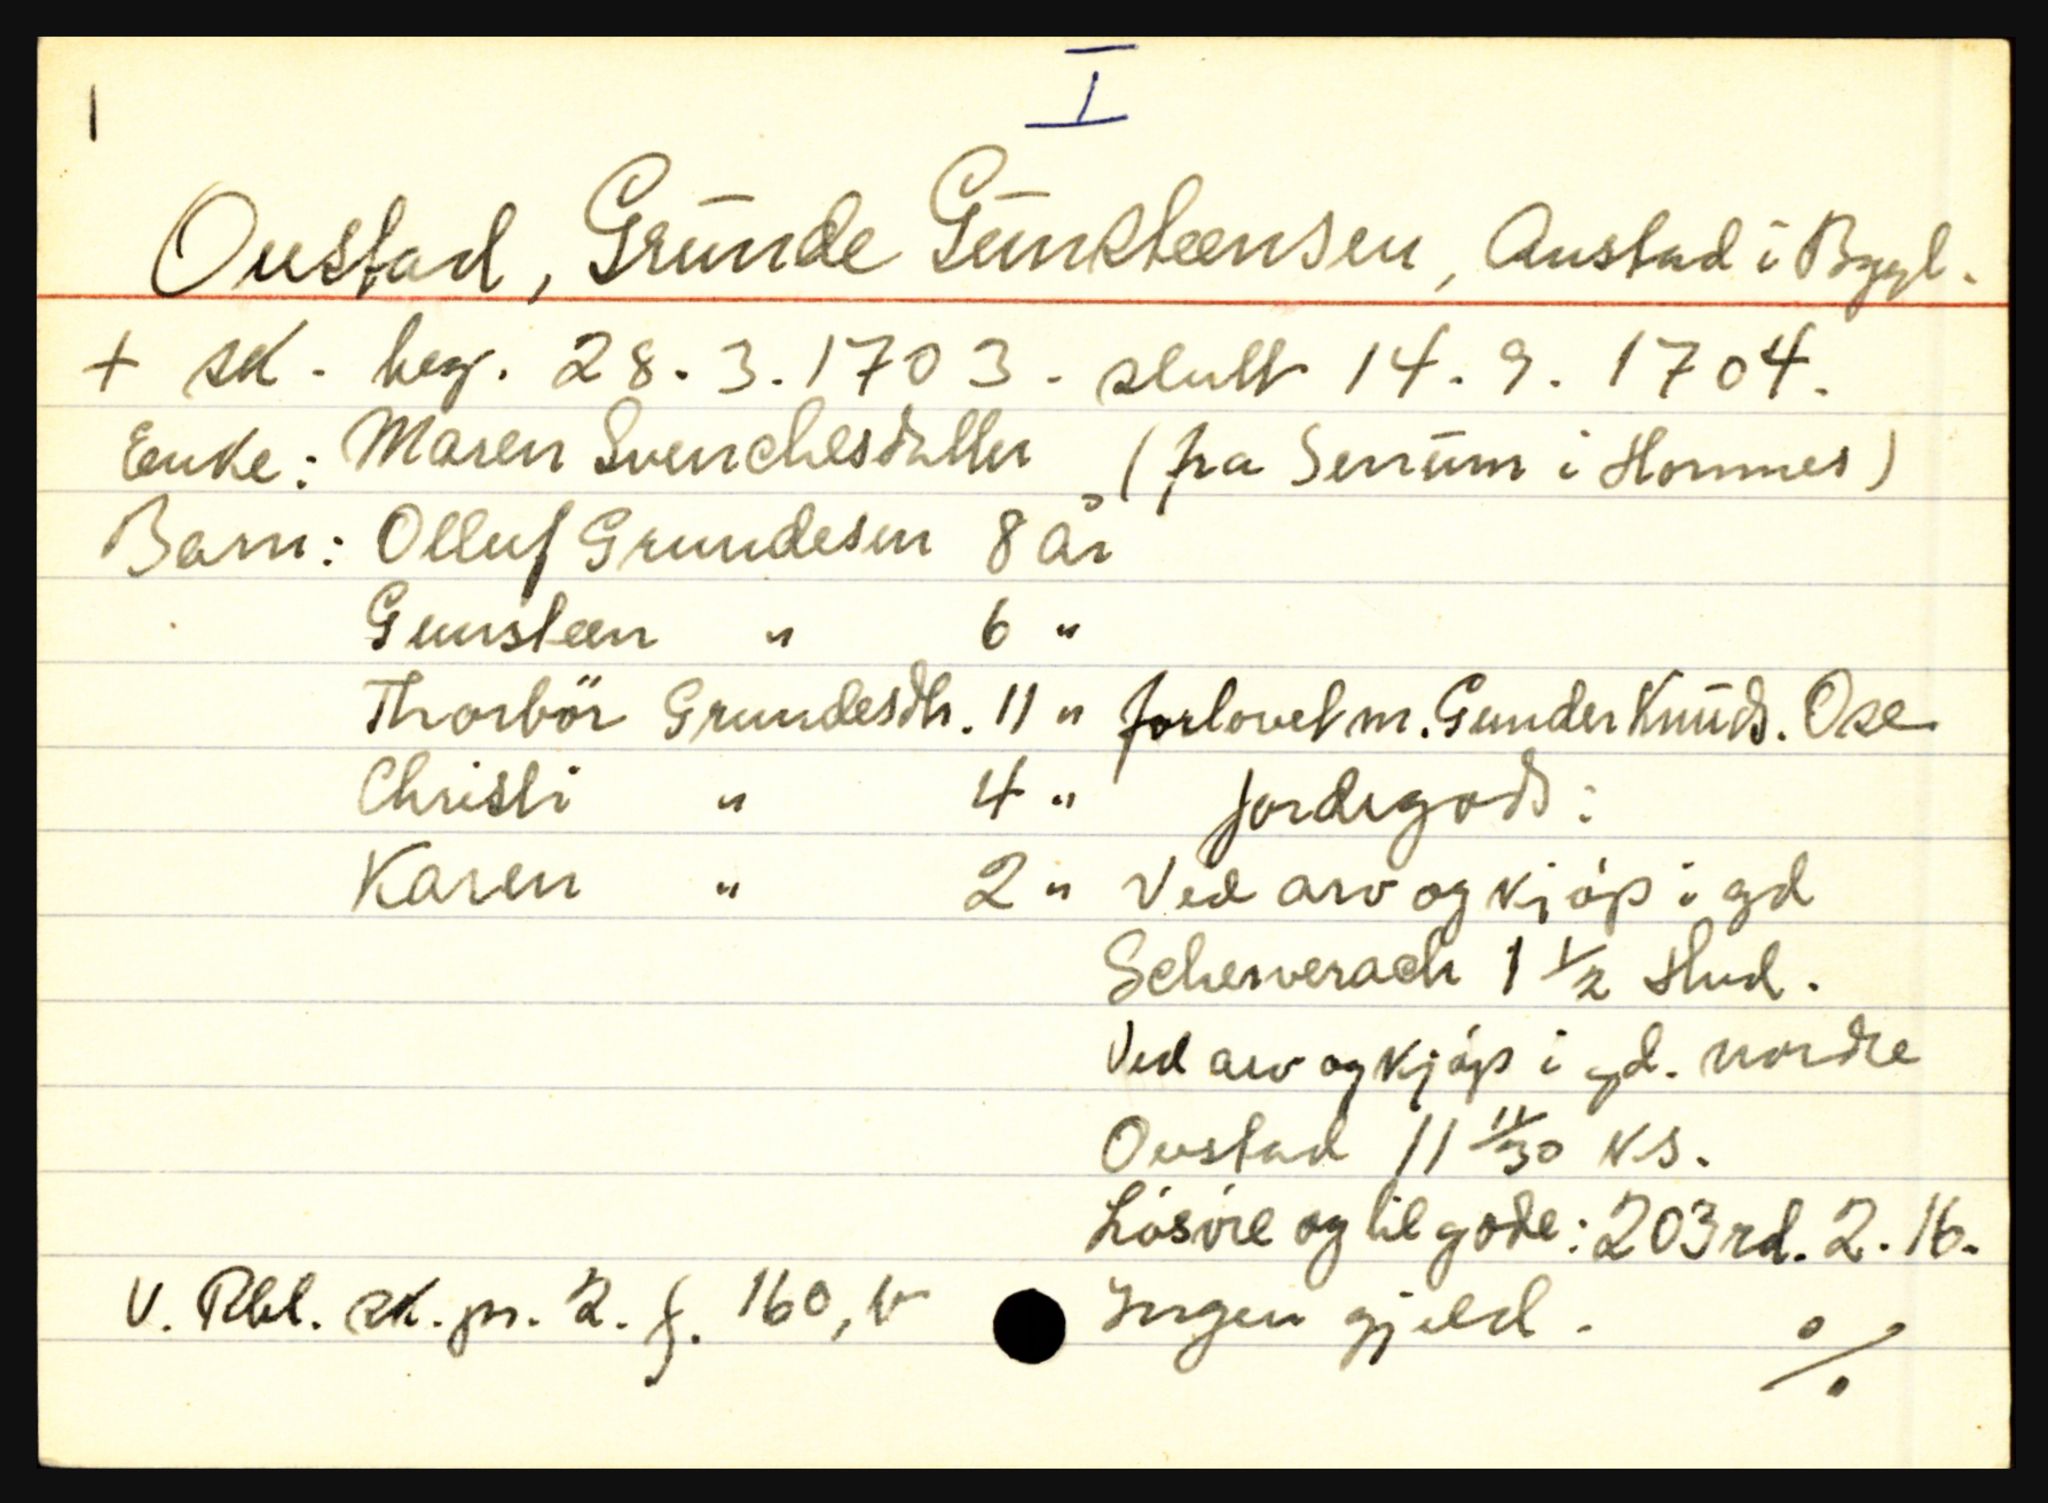 I
1
Oustad, Grunde Gunsteensen, Austad i Bygl.
+ sk. beg. 28. 3. 1703. slutt 14. 9. 1704.
Enke: Maren Svenchesdatter (fra Senum i Hornnes)
Barn: Olluf Grundesen 8 år
Gunsteen " 6 "
Thorbör Grundesdtr. 11 " forlovet m. Gunder Knuds. Ose
Christi " 4 " Jordegods:
Karen " 2 " Ved arv og kjøp i gd
Scheverach 1 1/2 Hud.
Ved arv og kjøp i gd. nordre
Oustad 11 11/30 ks.
Løsøre og tilgode: 203 rd. 2. 16.
V. Rbl. sk. pr. 2. f. 160, b Ingen gjeld. %